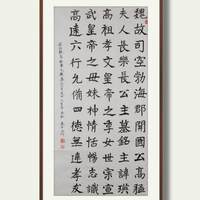 魏故司空勃海郡開國公高猛
夫人長樂長公主墓銘主諱瑛
高祖孝文皇帝之季女世宗宣
武皇帝之母妹神情恬暢志識
高遠六行允備四德無違孝友